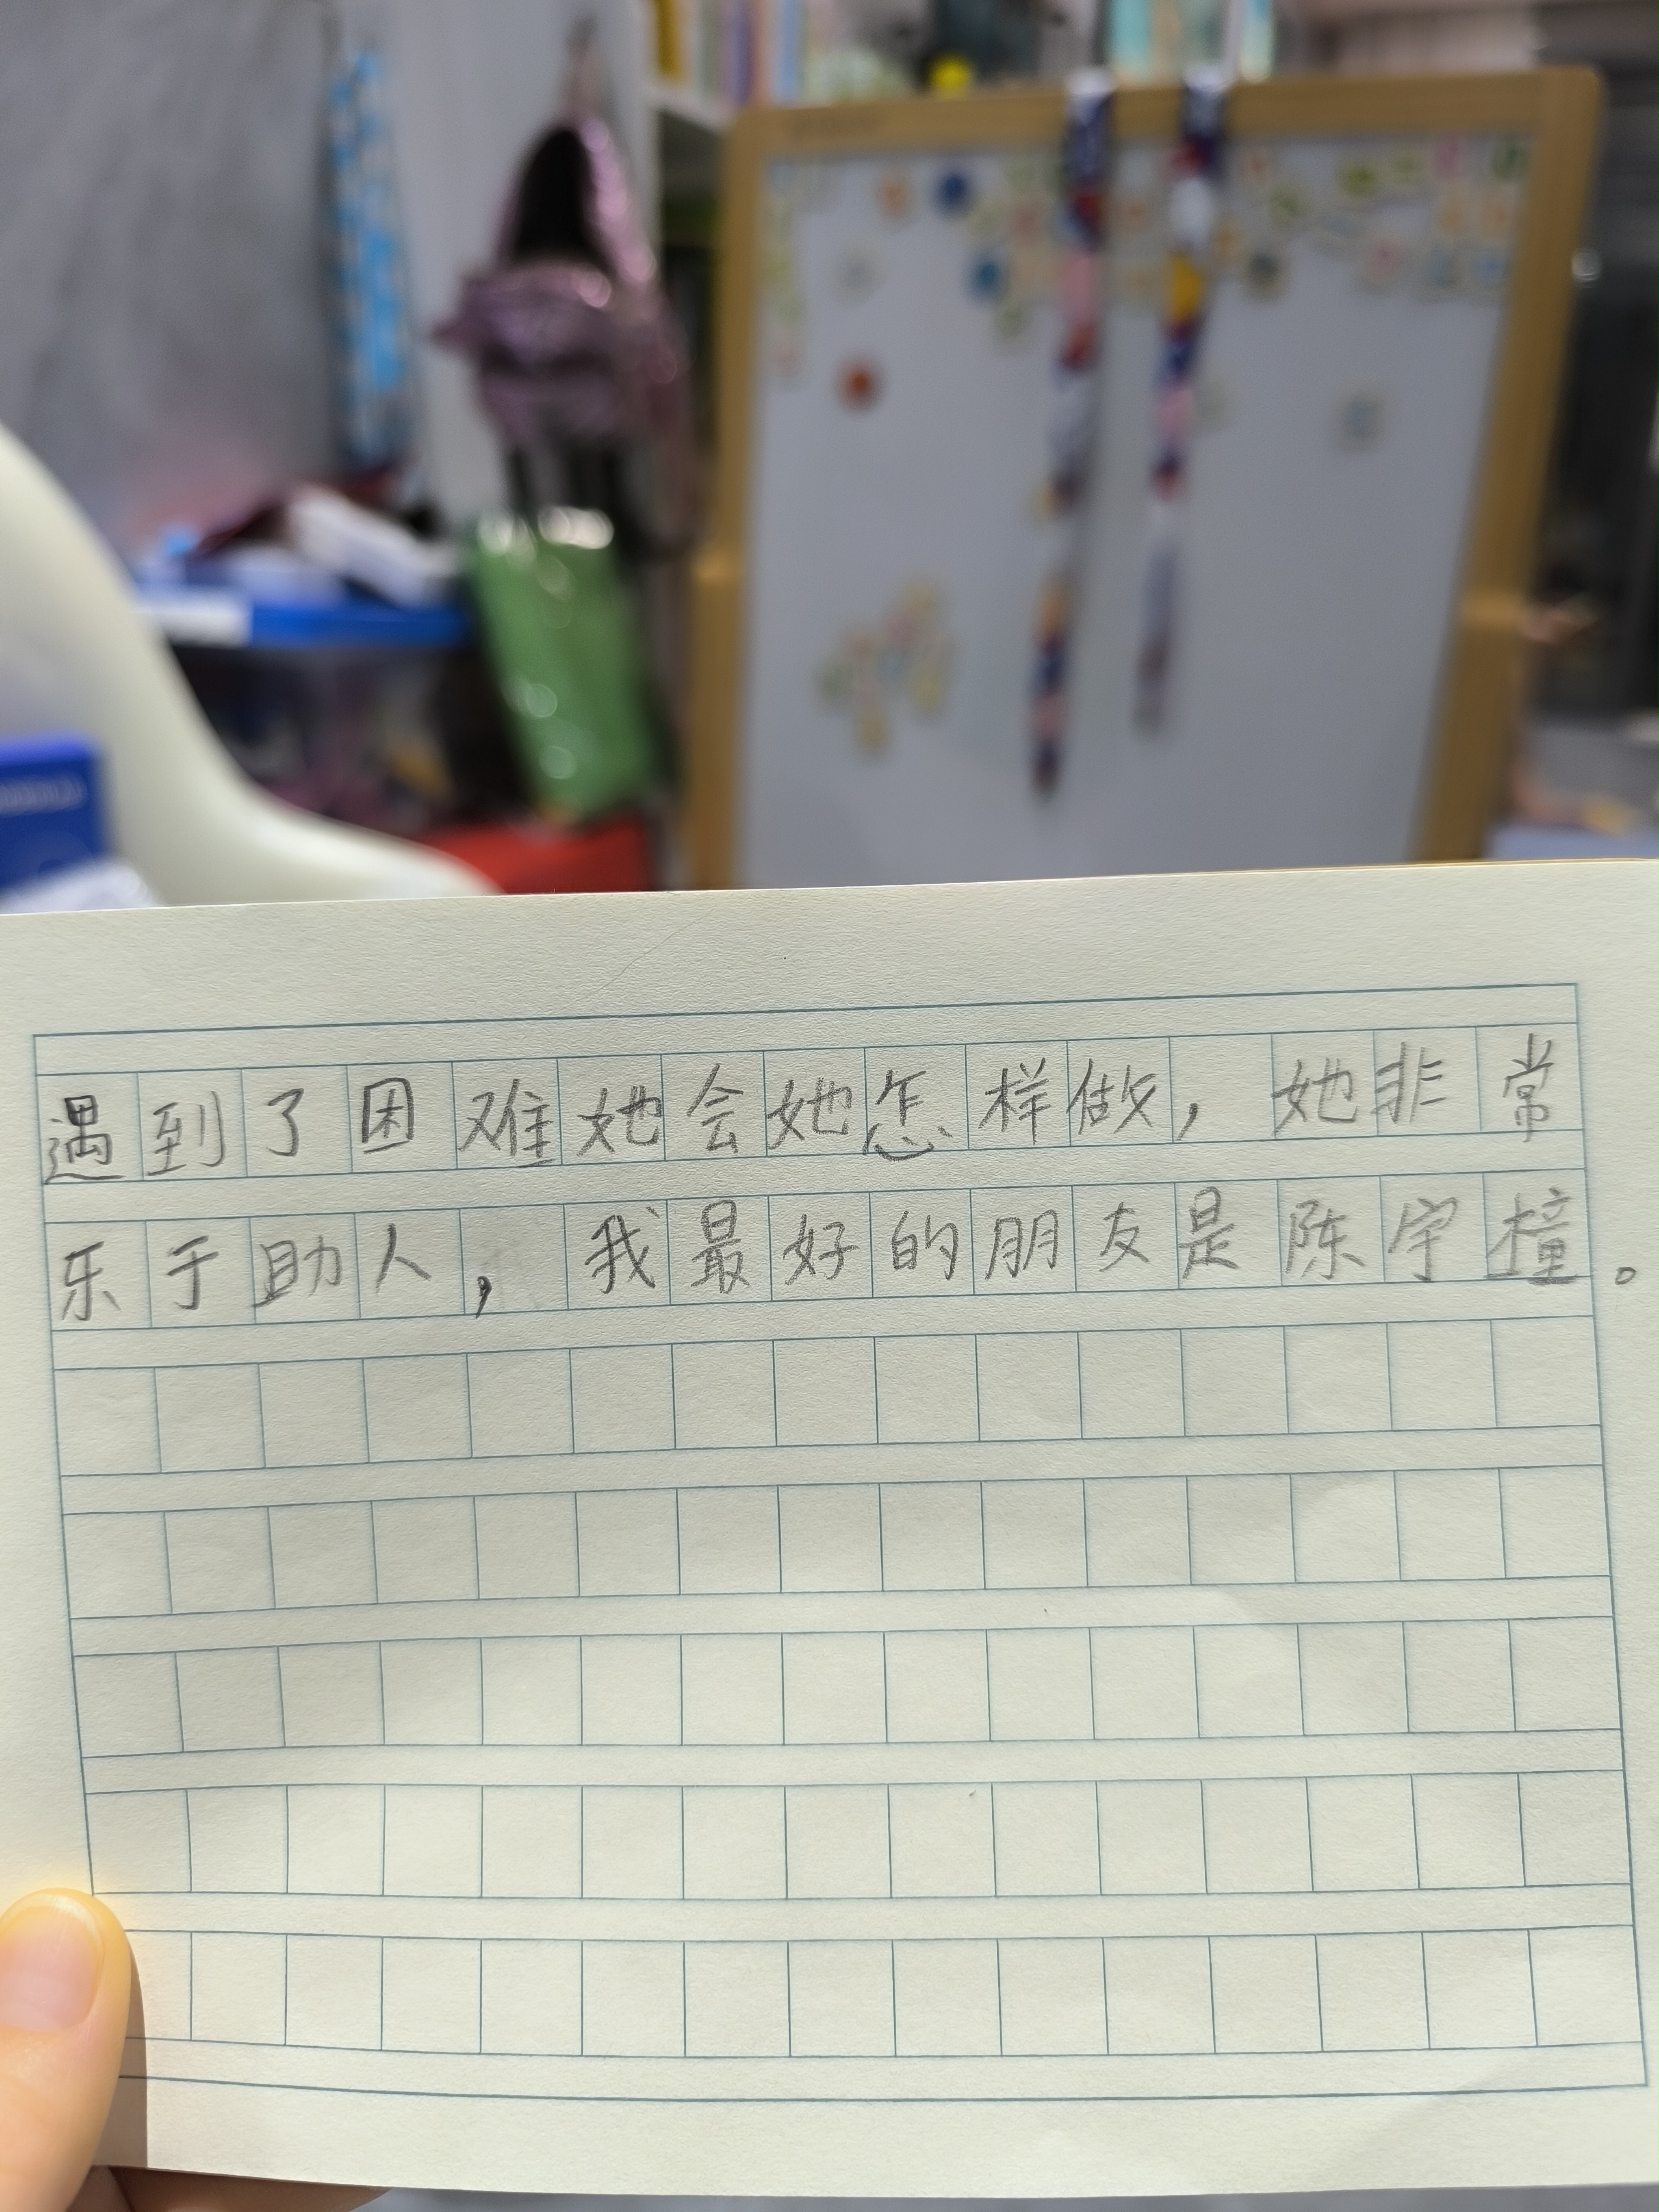 遇到了困难她会她怎样做，她非常
乐于助人，我最好的朋友是陈宇橦。